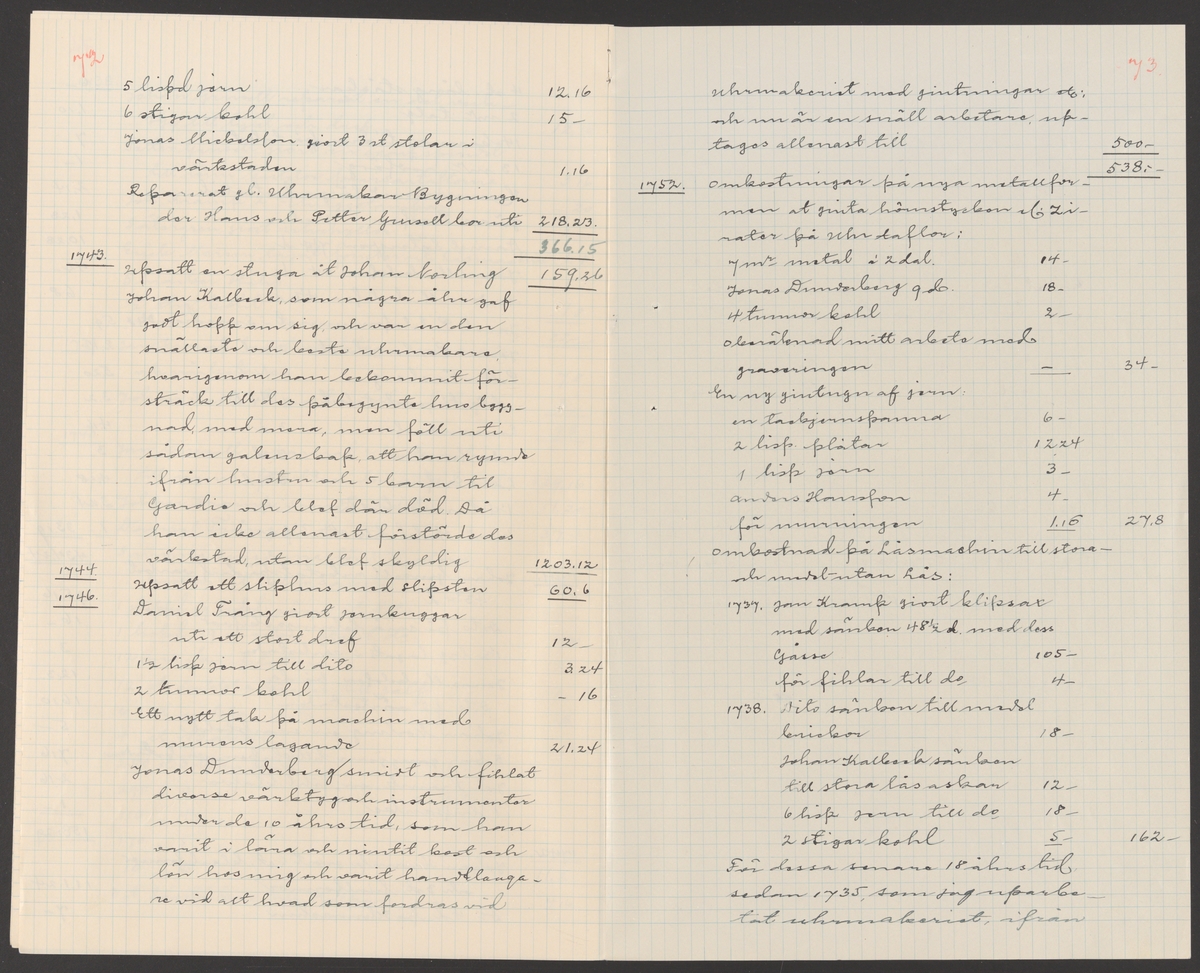 72
5 lispd jern 12.16
6 stigar kohl 15 –
Jonas Mickelsson giort 3 st stolar i
värkstaden 1.16
Reparerat gl. Uhrmakar Bygningen
der Hans och Petter Gruselt bor uti 218.23.
366.15
1743. Upsatt en stuga åt Johan Norling 159.26
Johan Kalbeck, som några åhr gaf
godt hopp om sig och var en den
snällaste och beste uhrmakare,
hvarigenom han bekommit för-
sträck till des påbegynte hus bygg-
nad, med mera, men föll uti
sådan galenskap, att han rymde
ifrån hustru och 5 barn til
Gardie och blef där död. Då
han icke allenast förstörde des
värkstad, utan blef skyldig 1203.12
1744. Upsatt ett sliphus med slipsten 60.6
1746. Daniel Trång giort jernkuggar
uti ett stort dref 12 –
1½ lisp jern till dito 3.24
2 tunnor kohl – 16
Ett nytt tak på machin med
murens lagande 21.24
Jonas Dunderberg smidt och fihlat
diverse värktyg och instrumenter
under de 10 åhrs tid, som han
varit i lära och niutit kost och
lön hos mig och varit handtlanga-
re vid alt hvad som fordras vid
73
Uhrmakeriet med giutningar etc:
och nu är en snäll arbetare, up-
tages allenast till 500.–
538:–
1752. Omkostningar på nya metallfor-
men at giuta hörnstycken etc Zi-
rater på Uhr taflor:
7 mr metal à 2 dal. 14 –
Jonas Dunderberg 9 d. 18 –
4 tunnor kohl 2 –
Oberäknad mitt arbete med
graveringen — 34 –
En ny giutugn af jern:
en tackjernspanna 6 –
2 lisp. plåtar 12 24
1 lisp jern 3 –
Anders Hansson 4 –
för murningen 1.16 27.8
Omkostnad på Låsmachin till stora
och medel-utan Lås:
1737. Jan Kramp giort klipsax
med sänken 48½ d. med dess
Gåsse 105 –
för fihlar till do 4 –
1738. Dito sänken till medel
brickor 18 –
Johan Kalbeck sänken
till stora lås askar 12 –
6 lisp jern till do 18 –
2 stigar kohl 5 – 162 –
För dessa senare 18 åhrs tid
sedan 1735, som jag uparbe-
tat uhrmakeriet, ifrån